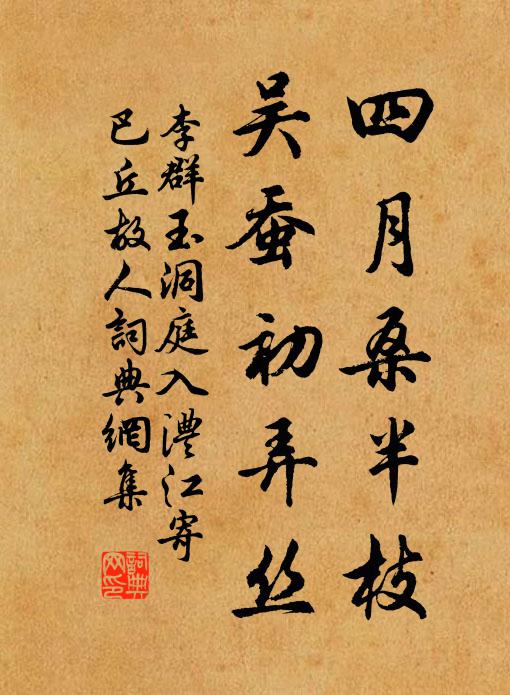 四月桑半枝
吴蚕初弄丝
李群玉洞庭入澧江寄
巴丘故人詞典網集
詞典
网印